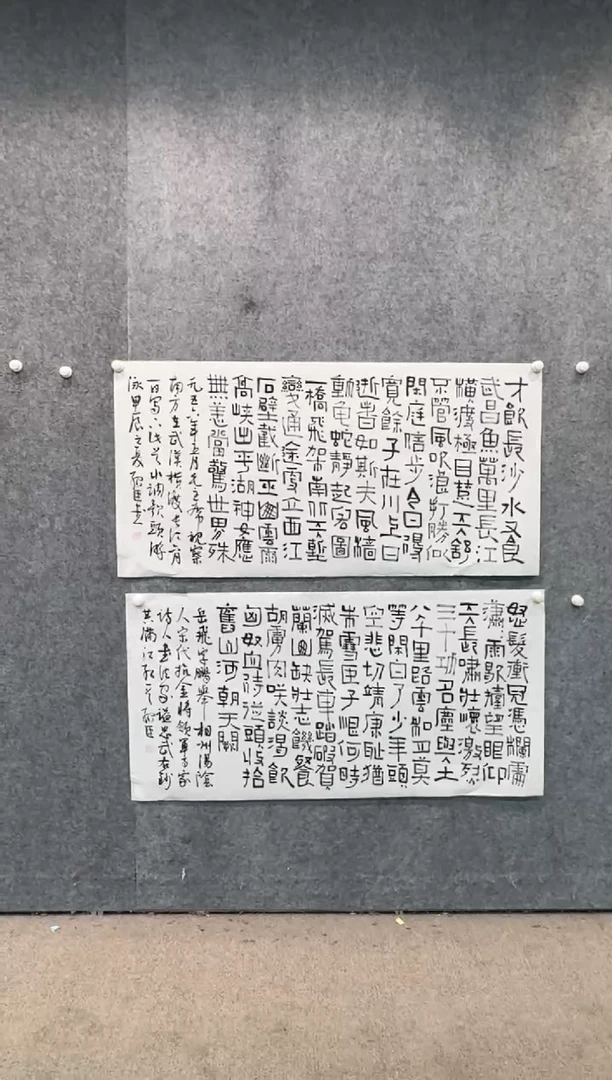 才飲長沙水又食
武昌魚萬里長江
橫渡極目楚天舒
不管風吹浪打勝似
閒庭信步今日得
寬餘子在川上曰
逝者如斯夫風檣
動龜蛇靜起宏圖
一橋飛架南北天塹
變通途更立西江
石壁截斷巫山雲雨
高峽出平湖神女應
無恙當驚世界殊
五六年五月毛主席視察
南方在武漢橫渡長江有
水調歌頭游
泳甲辰之
怒髮衝冠憑欄處
瀟雨歇擡望眼仰
天長嘯壯懷激烈
三十功名塵與土
八千里路雲和月莫
等閑白了少年頭
空悲切靖康恥猶
未雪臣子恨何時
滅駕長車踏破賀
蘭山缺壯志饑餐
胡虜肉笑談渴飲
匈奴血待從頭收拾
舊山河朝天闕
岳飛字鵬舉相州湯陰
人宋代抗金將領軍事家
詩人書法家謚忠武右鈔
其滿江紅